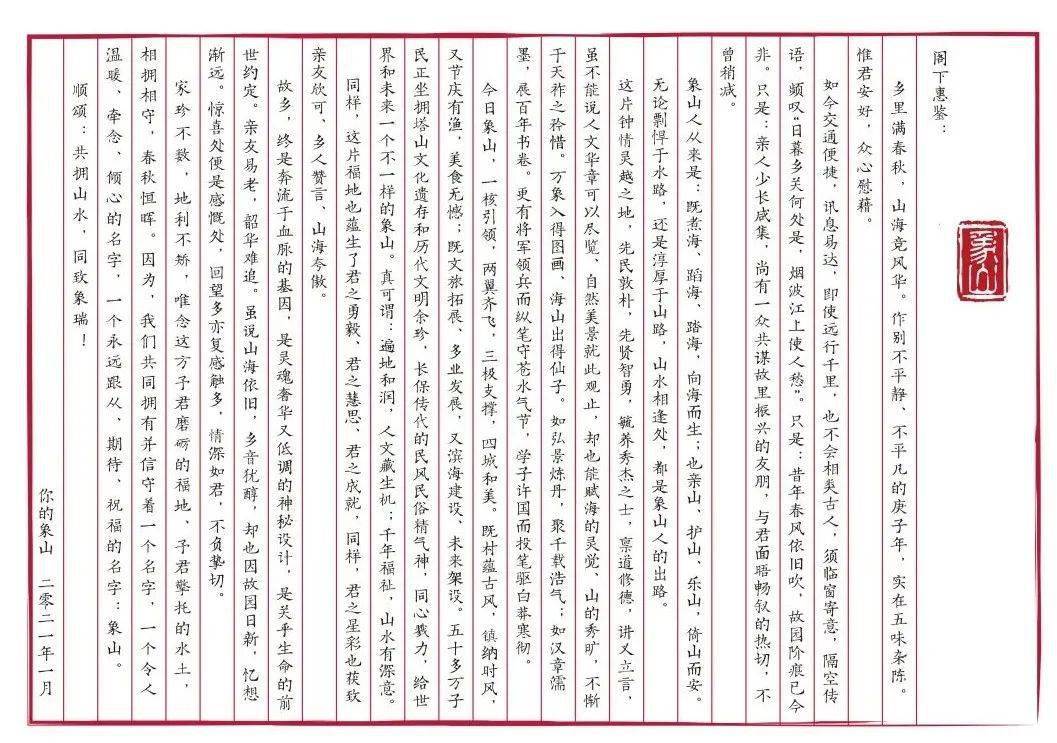 阁下惠鉴：
乡里满春秋，山海竞风华。作别不平静、不平凡的庚子年，实在五味杂陈。
惟君安好，众心慰藉。
如今交通便捷，讯息易达，即使远行千里，也不会相类古人，须临窗寄意，隔空传
语，频叹“日暮乡关何处是，烟波江上使人愁”。只是：昔年春风依旧吹，故园阶痕已今
非。只是：亲人少长咸集，尚有一众共谋故里振兴的友朋，与君面晤畅叙的热切，不
曾稍减。
象山人从来是：既煮海、蹈海、踏海，向海而生；也亲山、护山、乐山，倚山而安。
无论剽悍于水路，还是淳厚于山路，山水相逢处，都是象山人的出路。
这片钟情灵越之地，先民敦朴，先贤智勇，毓养秀杰之士，禀道修德，讲义立言，
虽不能说人文华章可以尽览、自然美景就此观止，却也能赋海的灵觉、山的秀旷，不惭
于天祚之矜惜。万象入得图画、海山出得仙子。如弘景炼丹，聚千载浩气；如汉章濡
墨，展百年书卷。更有将军领兵而纵笔守苍水气节，学子许国而投笔驱白莽寒彻。
今日象山，一核引领，两翼齐飞，三极支撑，四城和美。既村蕴古风，镇纳时风，
又节庆有渔，美食无憾；既文旅拓展、多业发展，又滨海建设、未来架设。五十多万子
民正坐拥塔山文化遗存和历代文明余珍，长保传代的民风民俗精气神，同心戮力，给世
界和未来一个不一样的象山。真可谓：遍地和润，人文藏生机；千年福祉，山水有深意。
同样，这片福地也蕴生了君之勇毅、君之慧思、君之成就，同样，君之星彩也获致
亲友欣可、乡人赞言、山海夸傲。
故乡，终是奔流于血脉的基因，是灵魂奢华又低调的神秘设计，是关乎生命的前
世约定。亲友易老，韶华难追。虽说山海依旧，乡音犹醇，却也因故园日新，忆想
渐远。惊喜处便是感慨处，回望多亦复感触多，情深如君，不负挚切。
家珍不数，地利不矫，唯念这方予君磨砺的福地、予君擎托的水土，
相拥相守，春秋恒晖。因为，我们共同拥有并信守着一个名字，一个令人
温暖、牵念、倾心的名字，一个永远跟从、期待、祝福的名字：象山。
顺颂：共拥山水，同致象瑞！
你的象山 二零二一年一月
象山